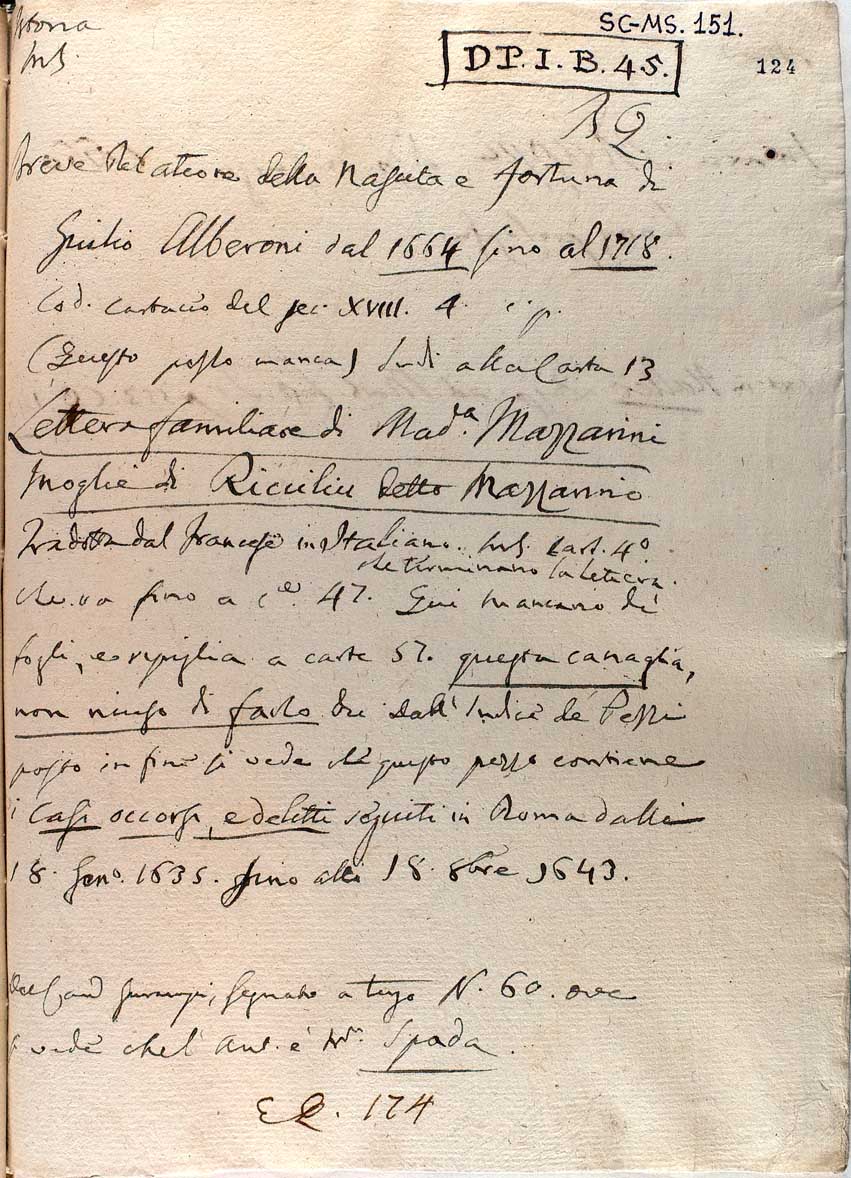 Storia
MS.
SC-MS. 151.
DP. I. B. 45.
124
Breve Relatione della Nascita e fortuna di
Giulio Alberoni dal 1664 fino al 1718.
Cod. cartaceo del sec. XVIII. 4.
(Questo posto manca) Indi alla Carta 13
Lettera familiare di Mad.a Mazzarini
moglie di Ricciliu detto Mazzarino
Tradotta dal francese in Italiano. MS. cart. 4o
che terminano la lettera.
che va fino a 47. Qui mancano de
fogli, e ripiglia a carte 57. questa canaglia,
non niego di farlo dall'Indice de Pezzi
posto in fine si vede che questo pezzo contiene
i Casi occorsi, e delitti seguiti in Roma dalli
18. Genº. 1635. fino alli 18. 8bre 1643.
Del segnato a tergo N. 60. ove
si vede che l'Aut. è Spada.
174